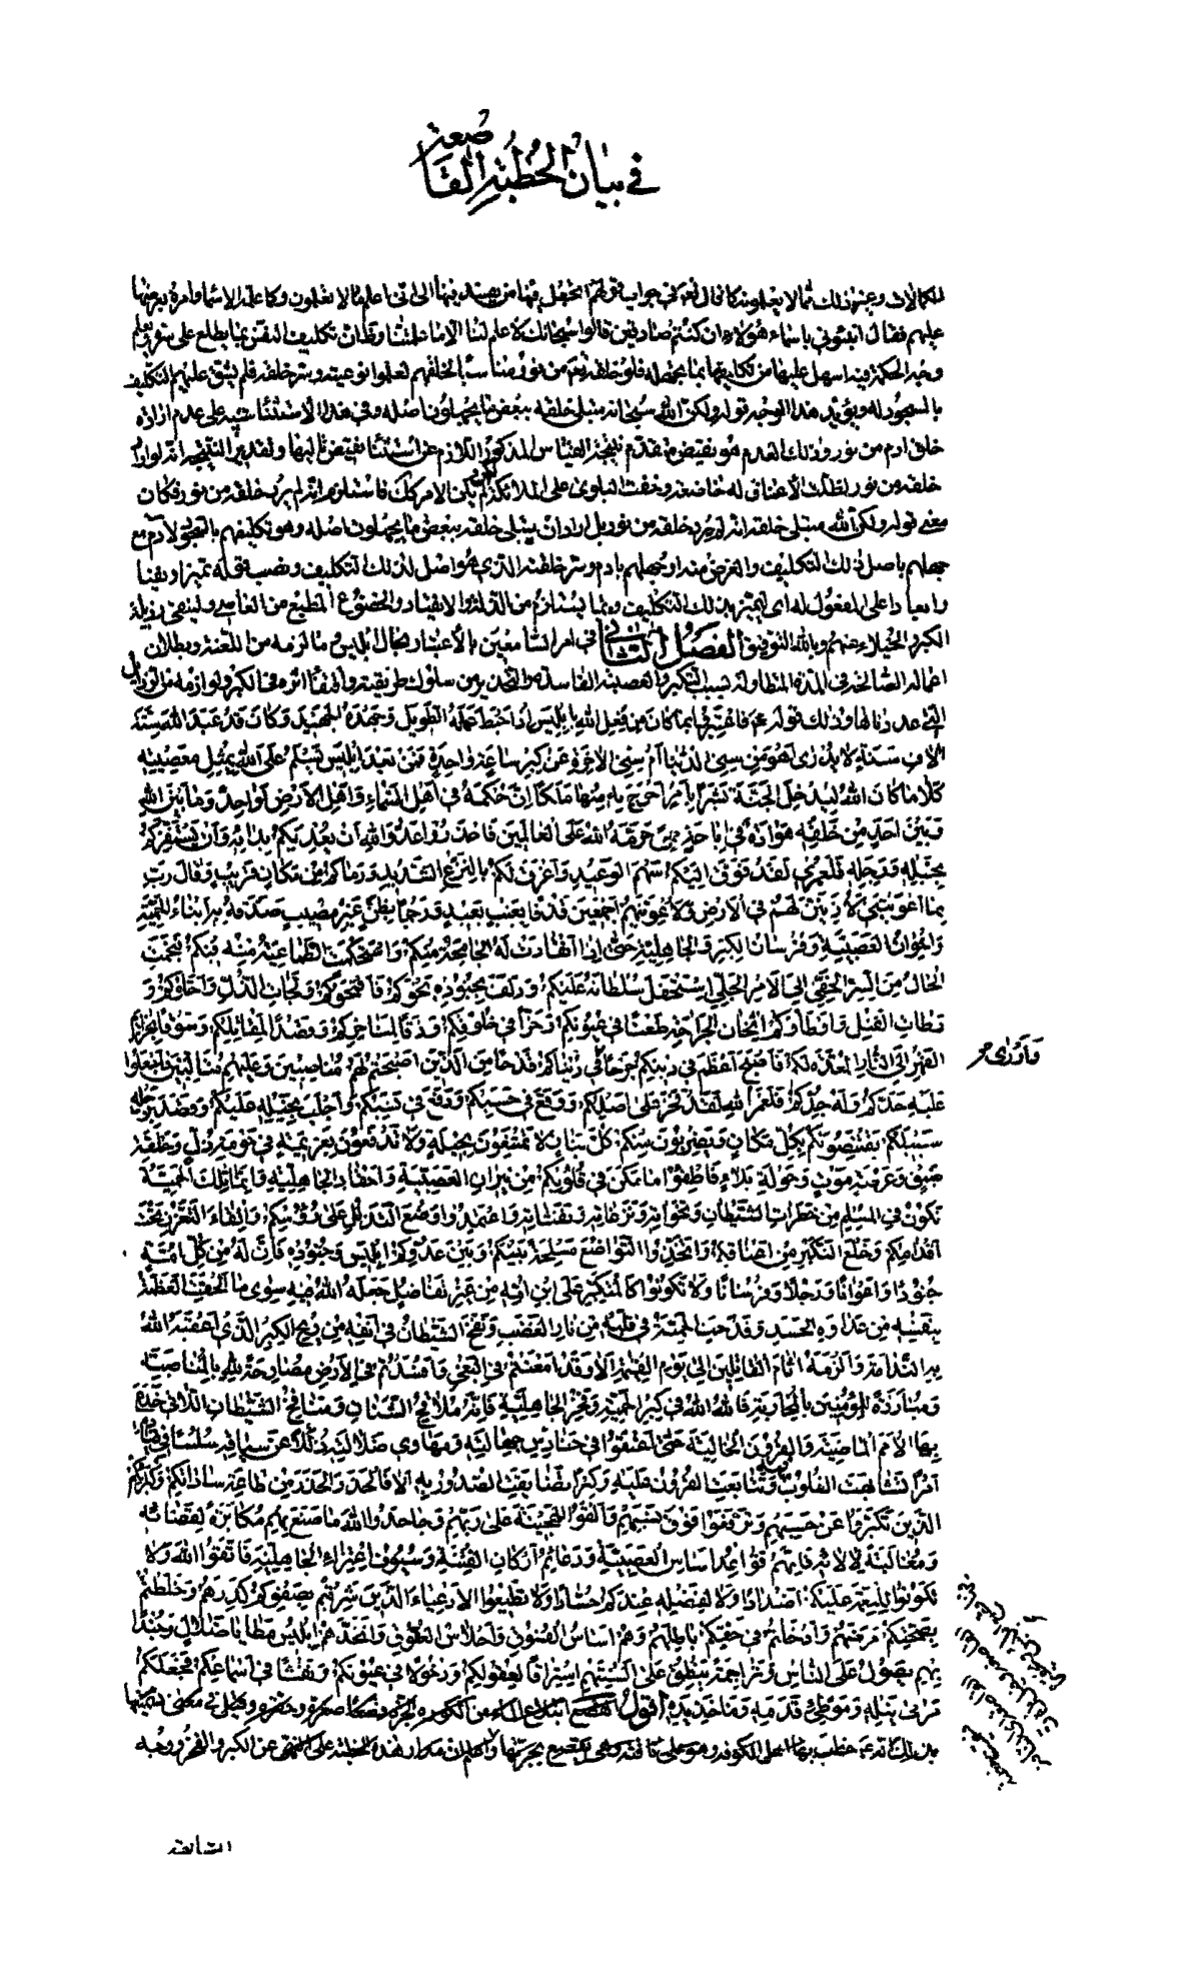 في بيان الخطبة القاصعة
الكمالات وغير ذلك مما لا يعلمونه كما قال تعالى في جواب قولهم اتجعل فيها من يفسد فيها اني اعلم ما لا تعلمون وكما علم آدم الاسماء وامره بعرضها
عليهم فقال انبئوني باسماء هؤلاء ان كنتم صادقين قالوا سبحانك لا علم لنا الا ما علمتنا وظاهر ان تكليف النفس بما يطلع على سره وتعلم
وجه الحكمة فيه اسهل عليها من تكليفها بما تجهله فلو خلقه تعالى من نور مناسبا لخلقهم لعلموا نوعيته وسر خلقه فلم يشق عليهم التكليف
بالسجود له ويؤيد هذا الوجه قوله ولكن الله سبحانه يبتلي خلقه ببعض ما يجهلون اصله وفي هذا الاستثناء تنبيه على عدم ارادة
خلق ادم من نور وذلك العدم هو نقيض مقدم نتيجة القياس المذكور اللازم عن استثناء نقيض تاليها وتقدير النتيجة انه لو اراد
خلقه من نور لظلت الأعناق له خاضعة وخفت البلوى على الملائكة لكن لم يكن الامر كك فاستلزم انه لم يرد خلقه من نور فكان
معنى قوله ولكن الله مبتلي خلقه انه لم يرد خلقه من نور بل اراد ان يبتلي خلقه ببعض ما يجهلون اصله وهو تكليفهم بالسجود لآدم مع
جهلهم باصل ذلك التكليف والغرض منه او جهلهم بادم وسر خلقته الذي هو اصل لذلك التكليف ونصب قوله تمييزا ونفيا
وابعادا على المفعول له اى ليتميز بذلك التكليف وبما يستلزم من الذلة والانقياد والخضوع المطيع من العاصي ولينفي رذيلة
الكبر والخيلاء عنهم وبالله التوفيق الفصل الثاني في امر السامعين بالأعتبار بحال ابليس وما لزمه من اللعنة وبطلان
اعماله الصالحة في المدة المتطاولة بسبب التكبر والعصبية الفاسدة من التحذير من سلوك طريقته واقتفاء اثره في الكبر ولوازمه من الرذايل
التي عددناها وذلك قوله ع فاعتبروا بما كان من فعل الله بابليس اذ احبط عمله الطويل وجهده الجهيد وكان قد عبد الله ستة
آلاف سنة لا يدرى أمن سني الدنيا أم سني الآخرة عن كبر ساعة واحدة فمن بعد ابليس يسلم على الله بمثل معصيته
كلا ما كان الله ليدخل الجنة بشرا بأمر اخرج به منها ملكا ان حكمه في اهل السماء واهل الأرض لواحد وما بين الله
وبين احد من خلقه هوادة في اباحة حمى حرمه الله على العالمين فاحذروا عدو الله ان يعديكم بدائه وان يستفزكم
بخيله ورجله فلعمري لقد فوق اليكم سهم الوعيد واغرق لكم بالنزع الشديد ورماكم من مكان قريب وقال رب
بما اغويتني لأزينن لهم في الارض ولأغوينهم اجمعين قذفا بغيب بعيد ورجما بظن غير مصيب صدقه به ابناء الحمية
واخوان العصبية وفرسان الكبر والجاهلية حتى اذا انقادت له الجامحة منكم واستحكمت الطماعية منه فيكم فنجمت
الحال من السر الخفي الى الامر الجلي استفحل سلطانه عليكم ودلف بجنوده نحوكم فأقحموكم ولجات الذل واحلوكم
ورطات القتل واوطأوكم اثخان الجراحة طعنا في عيونكم وحزا في حلوقكم ودقا لمناخركم وقصدا لمقاتلكم وسوقا بخزائم
القهر الى النار المعدة لكم فأصبح اعظم في دينكم جرحا في دنياكم قدحا من الذين اصبحتم لهم مناصبين وعليهم متألبين فاجعلوا
واورى خ
عليه حدكم وله جدكم فلعمر الله لقد فخر على اصلكم ووقع في حسبكم ودفع في نسبكم واجلب بخيله عليكم وقصد برجله
سبيلكم يقتنصونكم بكل مكان ويضربون منكم كل بنان لا تمتنعون بحيلة ولا تدفعون بعزيمة في حومة ذل وحلقة
ضيق وعرصة موت وجولة بلاء فأطفئوا ما كمن في قلوبكم من نيران العصبية واحقاد الجاهلية فانما تلك الحمية
تكون في المسلم من خطرات الشيطان ونخواته ونزغاته ونفثاته واعتمدوا وضع التذلل على رؤسكم والقاء التعزز تحت
اقدامكم وخلع التكبر من اعناقكم واتخذوا التواضع مسلحة بينكم وبين عدوكم ابليس وجنوده فان له من كل امة
جنودا واعوانا ورجلا وفرسانا ولا تكونوا كالمتكبر على ابن امه من غير ما فضل جعله الله فيه سوى ما الحقت العظمة
بنفسه من عداوة الحسد وقدحت الحمية في قلبه من نار الغضب ونفخ الشيطان في انفه من ريح الكبر الذي اعقبه الله
به الندامة والزمه آثام القاتلين الى يوم القيمة الا وقد امعنتم في البغي وافسدتم في الأرض مصارحة لله بالمناصبة
ومبارزة للمؤمنين بالمحاربة فالله الله في كبر الحمية وفخر الجاهلية فانه ملاقح الشنآن ومنافخ الشيطان اللاتي خدع
بها الأمم الماضية والقرون الخالية حتى اعنقوا في حنادس جهالته ومهاوي ضلالته ذللا عن سياقه سلسا في قياده
امرا تشابهت القلوب فيه وتتابعت القرون عليه وكبرا تضايقت الصدور به الا فالحذر الحذر من طاعة ساداتكم وكبرائكم
الذين تكبروا عن حسبهم وترفعوا فوق نسبهم والقوا الهجينة على ربهم وجاحدوا الله ما صنع بهم مكابرة لقضائه
ومغالبة لآلائه فانهم قواعد اساس العصبية ودعائم اركان الفتنة وسيوف اعتزاء الجاهلية فاتقوا الله ولا
تكونوا لنعمه عليكم اضدادا ولا لفضله عندكم حسادا ولا تطيعوا الادعياء الذين شربتم بصفوكم كدرهم وخلطتم
بصحتكم مرضهم وادخلتم في حقكم باطلهم وهم اساس الفسوق واحلاس العقوق اتخذهم ابليس مطايا ضلال وجندا
بهم يصول على الناس وتراجمة ينطق على السنتهم استراقا لعقولكم ودخولا في عيونكم ونفثا في اسماعكم فجعلكم
مرمى نبله وموطئ قدمه ومأخذ يده اقول القصع ابتلاع الماء والجرة وقصعه صغره وحقره وقيل في معنى تسميتها
بذلك انه ع خطب بها اهل الكوفة وهو على ناقة تقصع بجرتها واعلم ان مدار هذه الخطبة على النهى عن الكبر والفخر ونحوه
السابقة